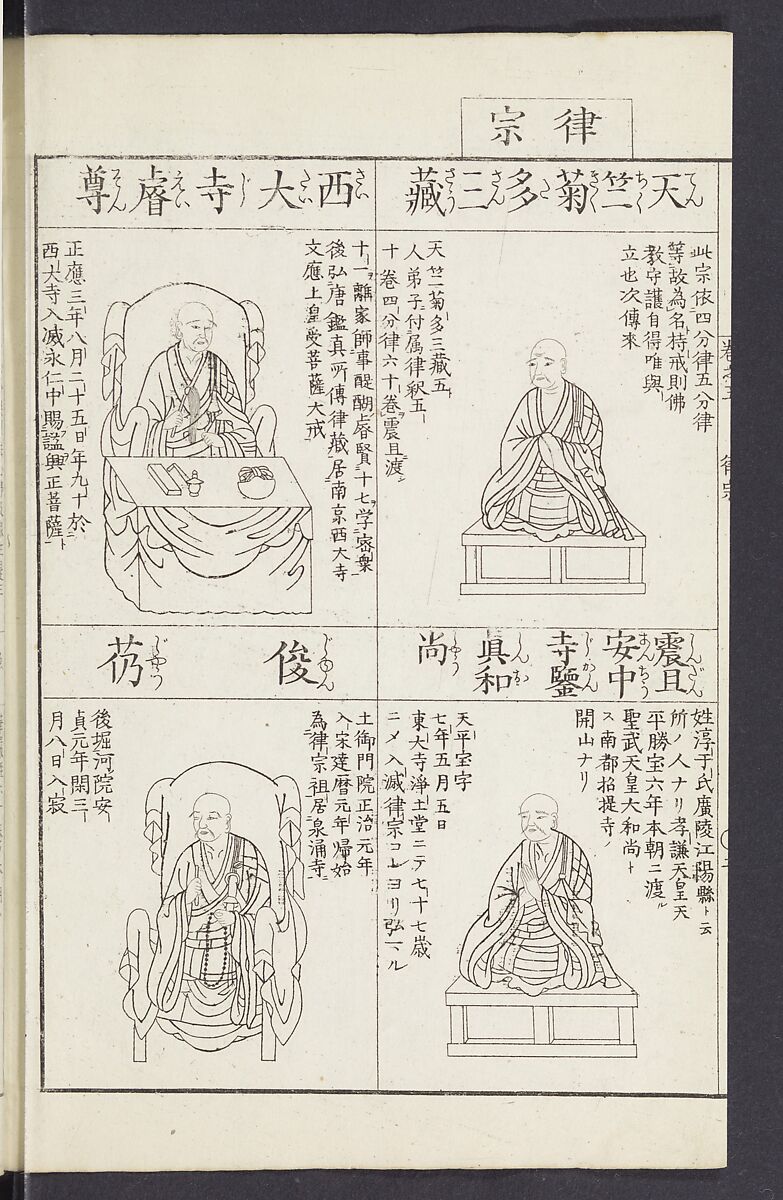 律宗
天竺菊多三藏
てんちくきくたさんさう
此宗依四分律五分律
等故為名持戒則佛
教守護自得唯與
立也次傳來
天竺菊多三藏五
人弟子付属律釈五
十卷四分律六十卷震旦渡
西大寺睿尊
さいたいじえいそん
十一離家師事醍醐睿賢十七学密乗
後弘唐鑑真所傳律藏居南京西大寺
文應上皇受菩薩大戒
正應三年八月二十五日年九十於
西大寺入滅永仁中賜謚興正菩薩ト
震旦安中寺鑒眞和尚
しんだんあんちうじかんしんおしやう
姓淳于氏廣陵江陽縣ト云
所ノ人ナリ孝謙天皇天
平勝宝六年本朝ニ渡ル
聖武天皇大和尚ト
ス南都招提寺ノ
開山ナリ
天平宝字
七年五月五日
東大寺淨土堂ニテ七十七歳
ニメ入滅律宗コレヨリ弘マル
俊芿
じゆんじやう
土御門院正治元年
入宋建暦元年帰始
為律宗祖居泉涌寺
後堀河院安
貞元年閏三
月八日入寂
律宗